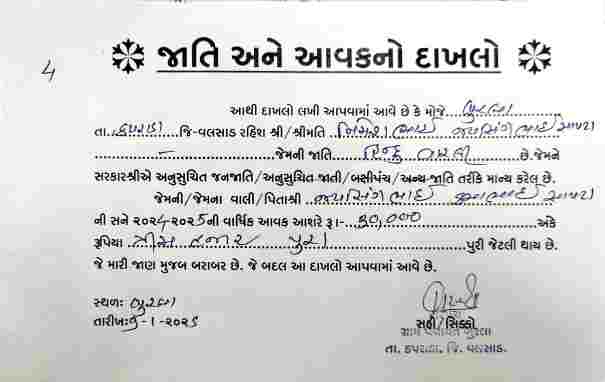 4
જાતિ અને આવકનો દાખલો
આથી દાખલો લખી આપવામાં આવે છે કે મોજે બુરલા
તા. કપરાડા જિ-વલસાડ રહિશ શ્રી/શ્રીમતિ નિમેશભાઈ જયસિંગભાઈ
જેમની જાતિ હિન્દુ વારલી છે.જેમને
સરકારશ્રીએ અનુસુચિત જનજાતિ/અનુસુચિત જાતી/બક્ષીપંચ/અન્ય જાતિ તરીકે માન્ય કરેલ છે.
જેમની/જેમના વાલી/પિતાશ્રી જયસિંગભાઈ
ની સને ૨૦૨૪-૨૦૨૫ની વાર્ષિક આવક આશરે રૂા- ૩૦,૦૦૦ અંકે
રૂપિયા ત્રીસ હજાર પુરા પુરી જેટલી થાય છે.
જે મારી જાણ મુજબ બરાબર છે. જે બદલ આ દાખલો આપવામાં આવે છે.
સ્થળઃ બુરલા
તારીખઃ -1-૨૦૨૬
સહી/સિક્કો
ગ્રામ પંચાયત બુરલા
તા. કપરાડા, જિ. વલસાડ.